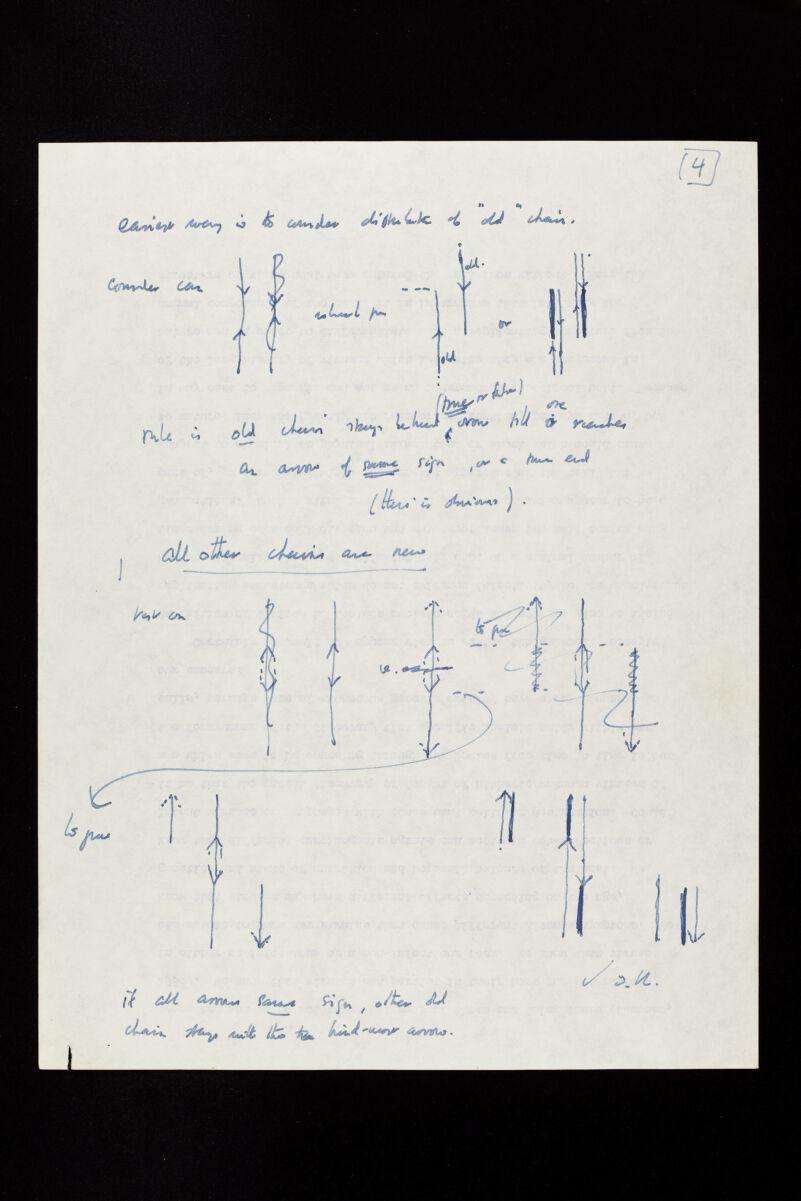 4
easiest way is to consider distribution of "old" chain.
Consider case
old.
which give
or
old
(true or false)
rule is old chain stays behind arrow till one reaches
an arrow of same sign, or a true end
(this is obvious).
All other chains are new
test case
to give
i.e.
to give
✓ O.K.
if all arrows same sign, other old
chain stays with the hind-most arrow.